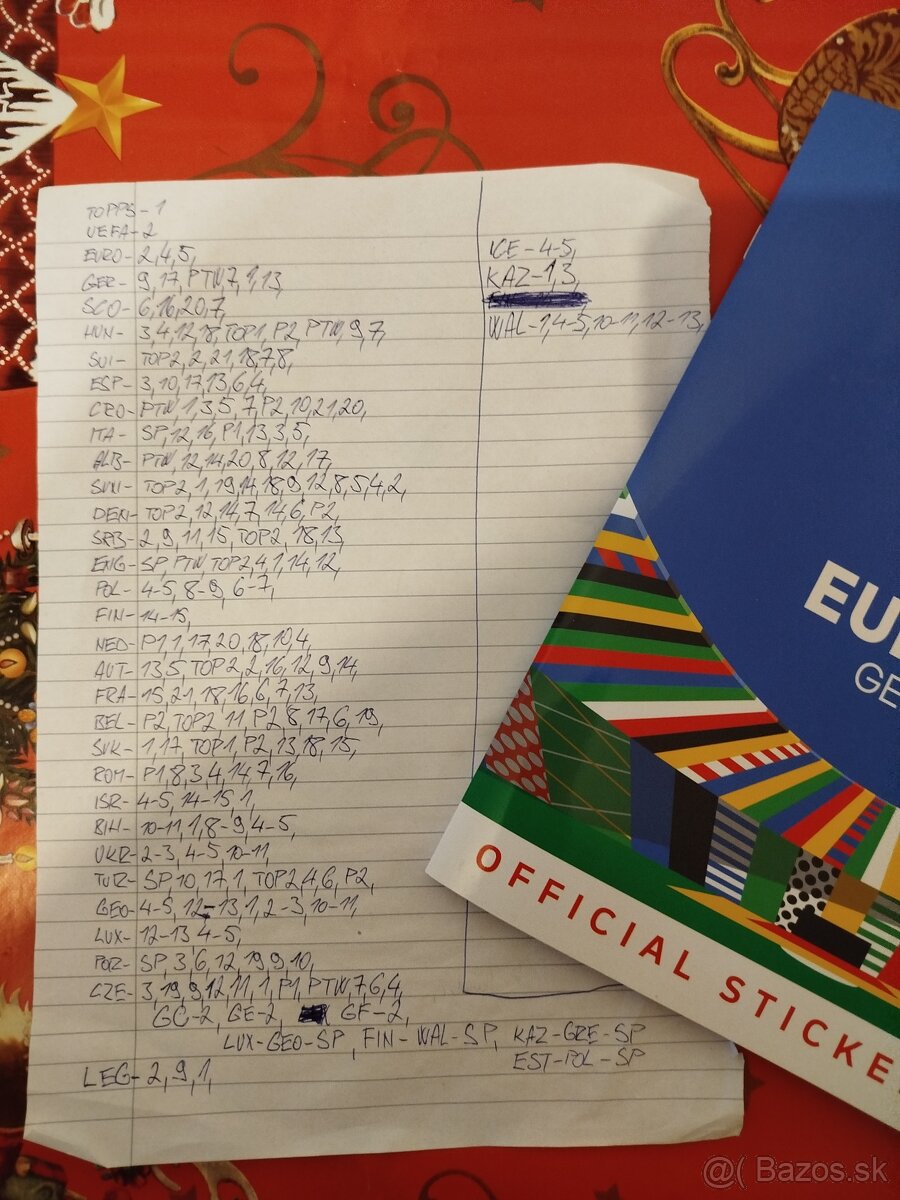 TOPPS-1
UEFA-2
EURO-2,4,5,
GER-9,17,PTW7,1,13,
SCO-6,16,20,7,
HUN-3,4,12,18,TOP1,P2,PTW,9,7,
SUI-TOP2,2,21,18,7,8,
ESP-3,10,17,13,6,4,
CRO-PTW,1,3,5,7,P2,10,21,20,
ITA-SP,12,16,P1,13,3,5,
ALB-PTW,12,14,20,8,12,17,
SVN-TOP2,1,19,14,18,9,12,8,5,4,2,
DEN-TOP2,12,14,7,14,6,P2,
SRB-2,9,11,15,TOP2,18,13,
ENG-SP,PTW,TOP2,4,1,14,12,
POL-4-5,8-9,6-7,
FIN-14-15,
NED-P1,1,17,20,18,10,4,
AUT-13,5,TOP2,2,16,12,9,14,
FRA-15,21,18,16,6,7,13,
BEL-P2,TOP2,11,P2,8,17,6,19,
SVK-1,17,TOP1,P2,13,18,15,
ROM-P1,8,3,4,14,7,16,
ISR-4-5,14-15,1,
BIH-10-11,1,8-9,4-5,
UKR-2-3,4-5,10-11,
TUR-SP,10,17,1,TOP2,4,6,P2,
GEO-4-5,12-13,1,2-3,10-11,
LUX-12-13,4-5,
POR-SP,3,6,12,19,9,10,
CZE-3,19,9,12,11,1,P1,PTW,7,6,4,
GC-2, GE-2, GF-2,
LUX-GEO-SP, FIN-WAL-SP, KAZ-GRE-SP
EST-POL-SP
LEG-2,9,1,
ICE-4-5,
KAZ-1,3,
WAL-1,4-5,10-11,12-13,
EU
GE
OFFICIAL STICKE
@( Bazos.sk